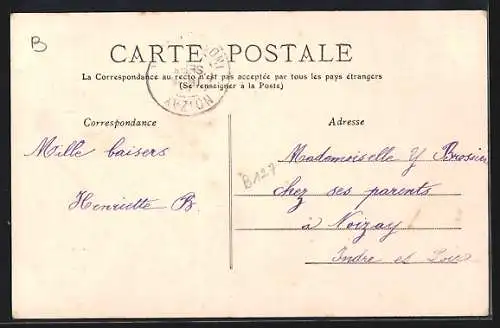 B
CARTE POSTALE
La Correspondance au recto n'est pas acceptée par tous les pays étrangers
(Se renseigner à la Poste)
NOIZAY
Correspondance
Adresse
Mille baisers
Henriette B.
Mademoiselle Y Brosier
B127
chez ses parents
à Noizay
Indre et Loire